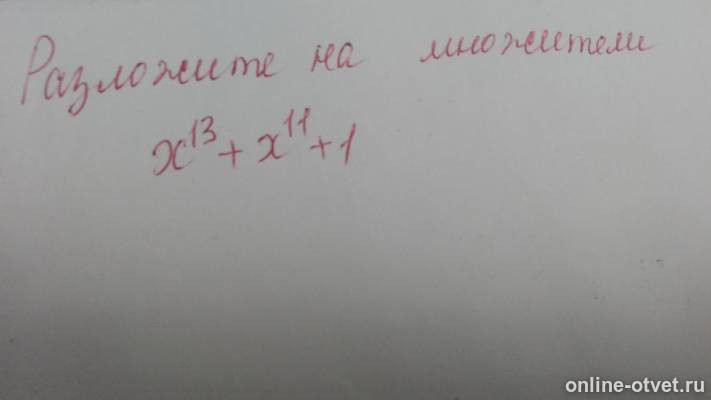 Разложите на множители
x¹³ + x¹¹ + 1
online-otvet.ru